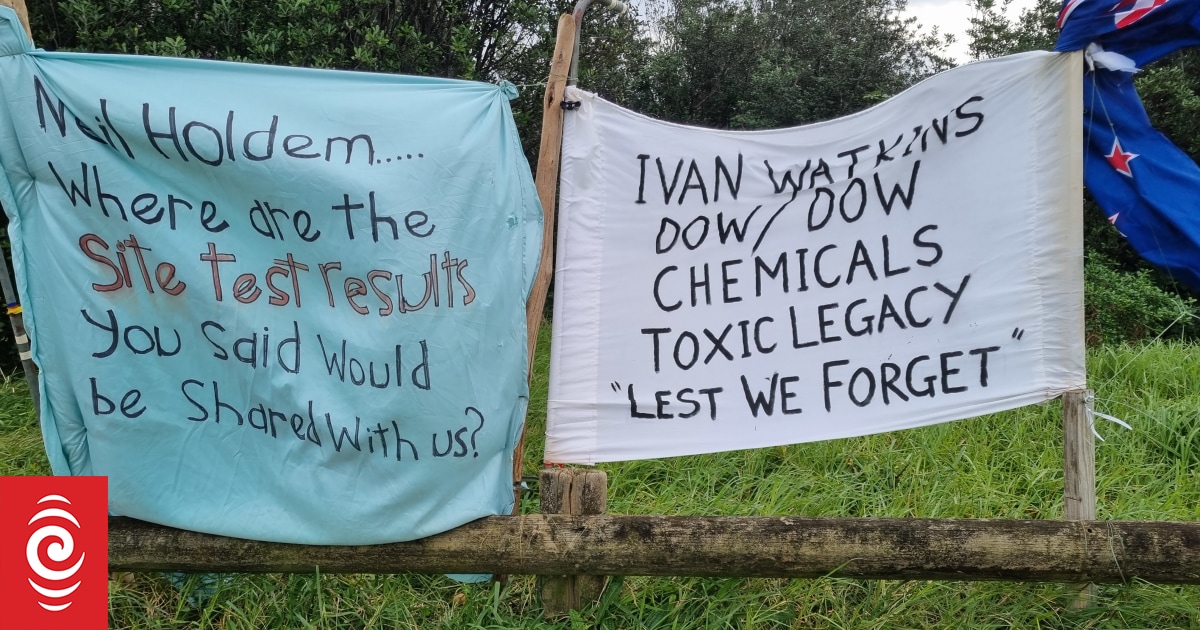 Neil Holdem.....
Where are the
Site test results
you Said Would
be Shared With us?
IVAN WATKINS
DOW/ DOW
CHEMICALS
TOXIC LEGACY
"LEST WE FORGET"